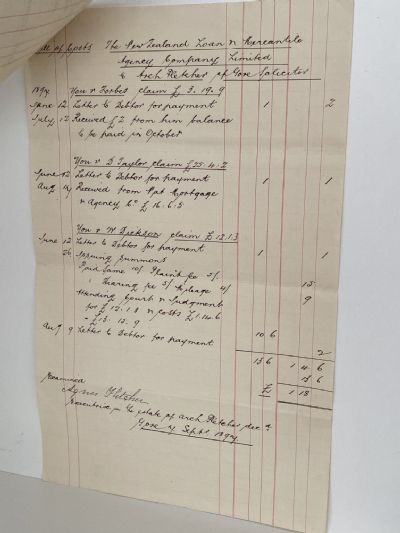 Bill of Costs The New Zealand Loan & Mercantile
Agency Company Limited
to Arch Fletcher of Gore Solicitor
1897 You v Forbes claim £3.19.9
June 12 Letter to Debtor for payment 1 2
July 12 Received £2 from him balance
to be paid in October
You v D Taylor claim £25.4.2
June 12 Letter to Debtor for payment 1 1
Aug 19 Received from Mortgage
& Agency Co £16.6.5
You v W Dickson claim £12.1.3
June 12 Letter to Debtor for payment 1 1
26 Issuing summons
Paid same 10/ Plaint fee 2/
Hearing fee 5/ Mileage 4/ 15
Attending Court & Judgment 9
for £12.1.3 & costs £1.14.6
£13.15.9
Aug 9 Letter to Debtor for payment 10 6
2
13 6 1 4 6
13 6
£1 18
Examined
Agnes Fletcher
Executrix in estate of Arch Fletcher decd
Gore Septr 1897